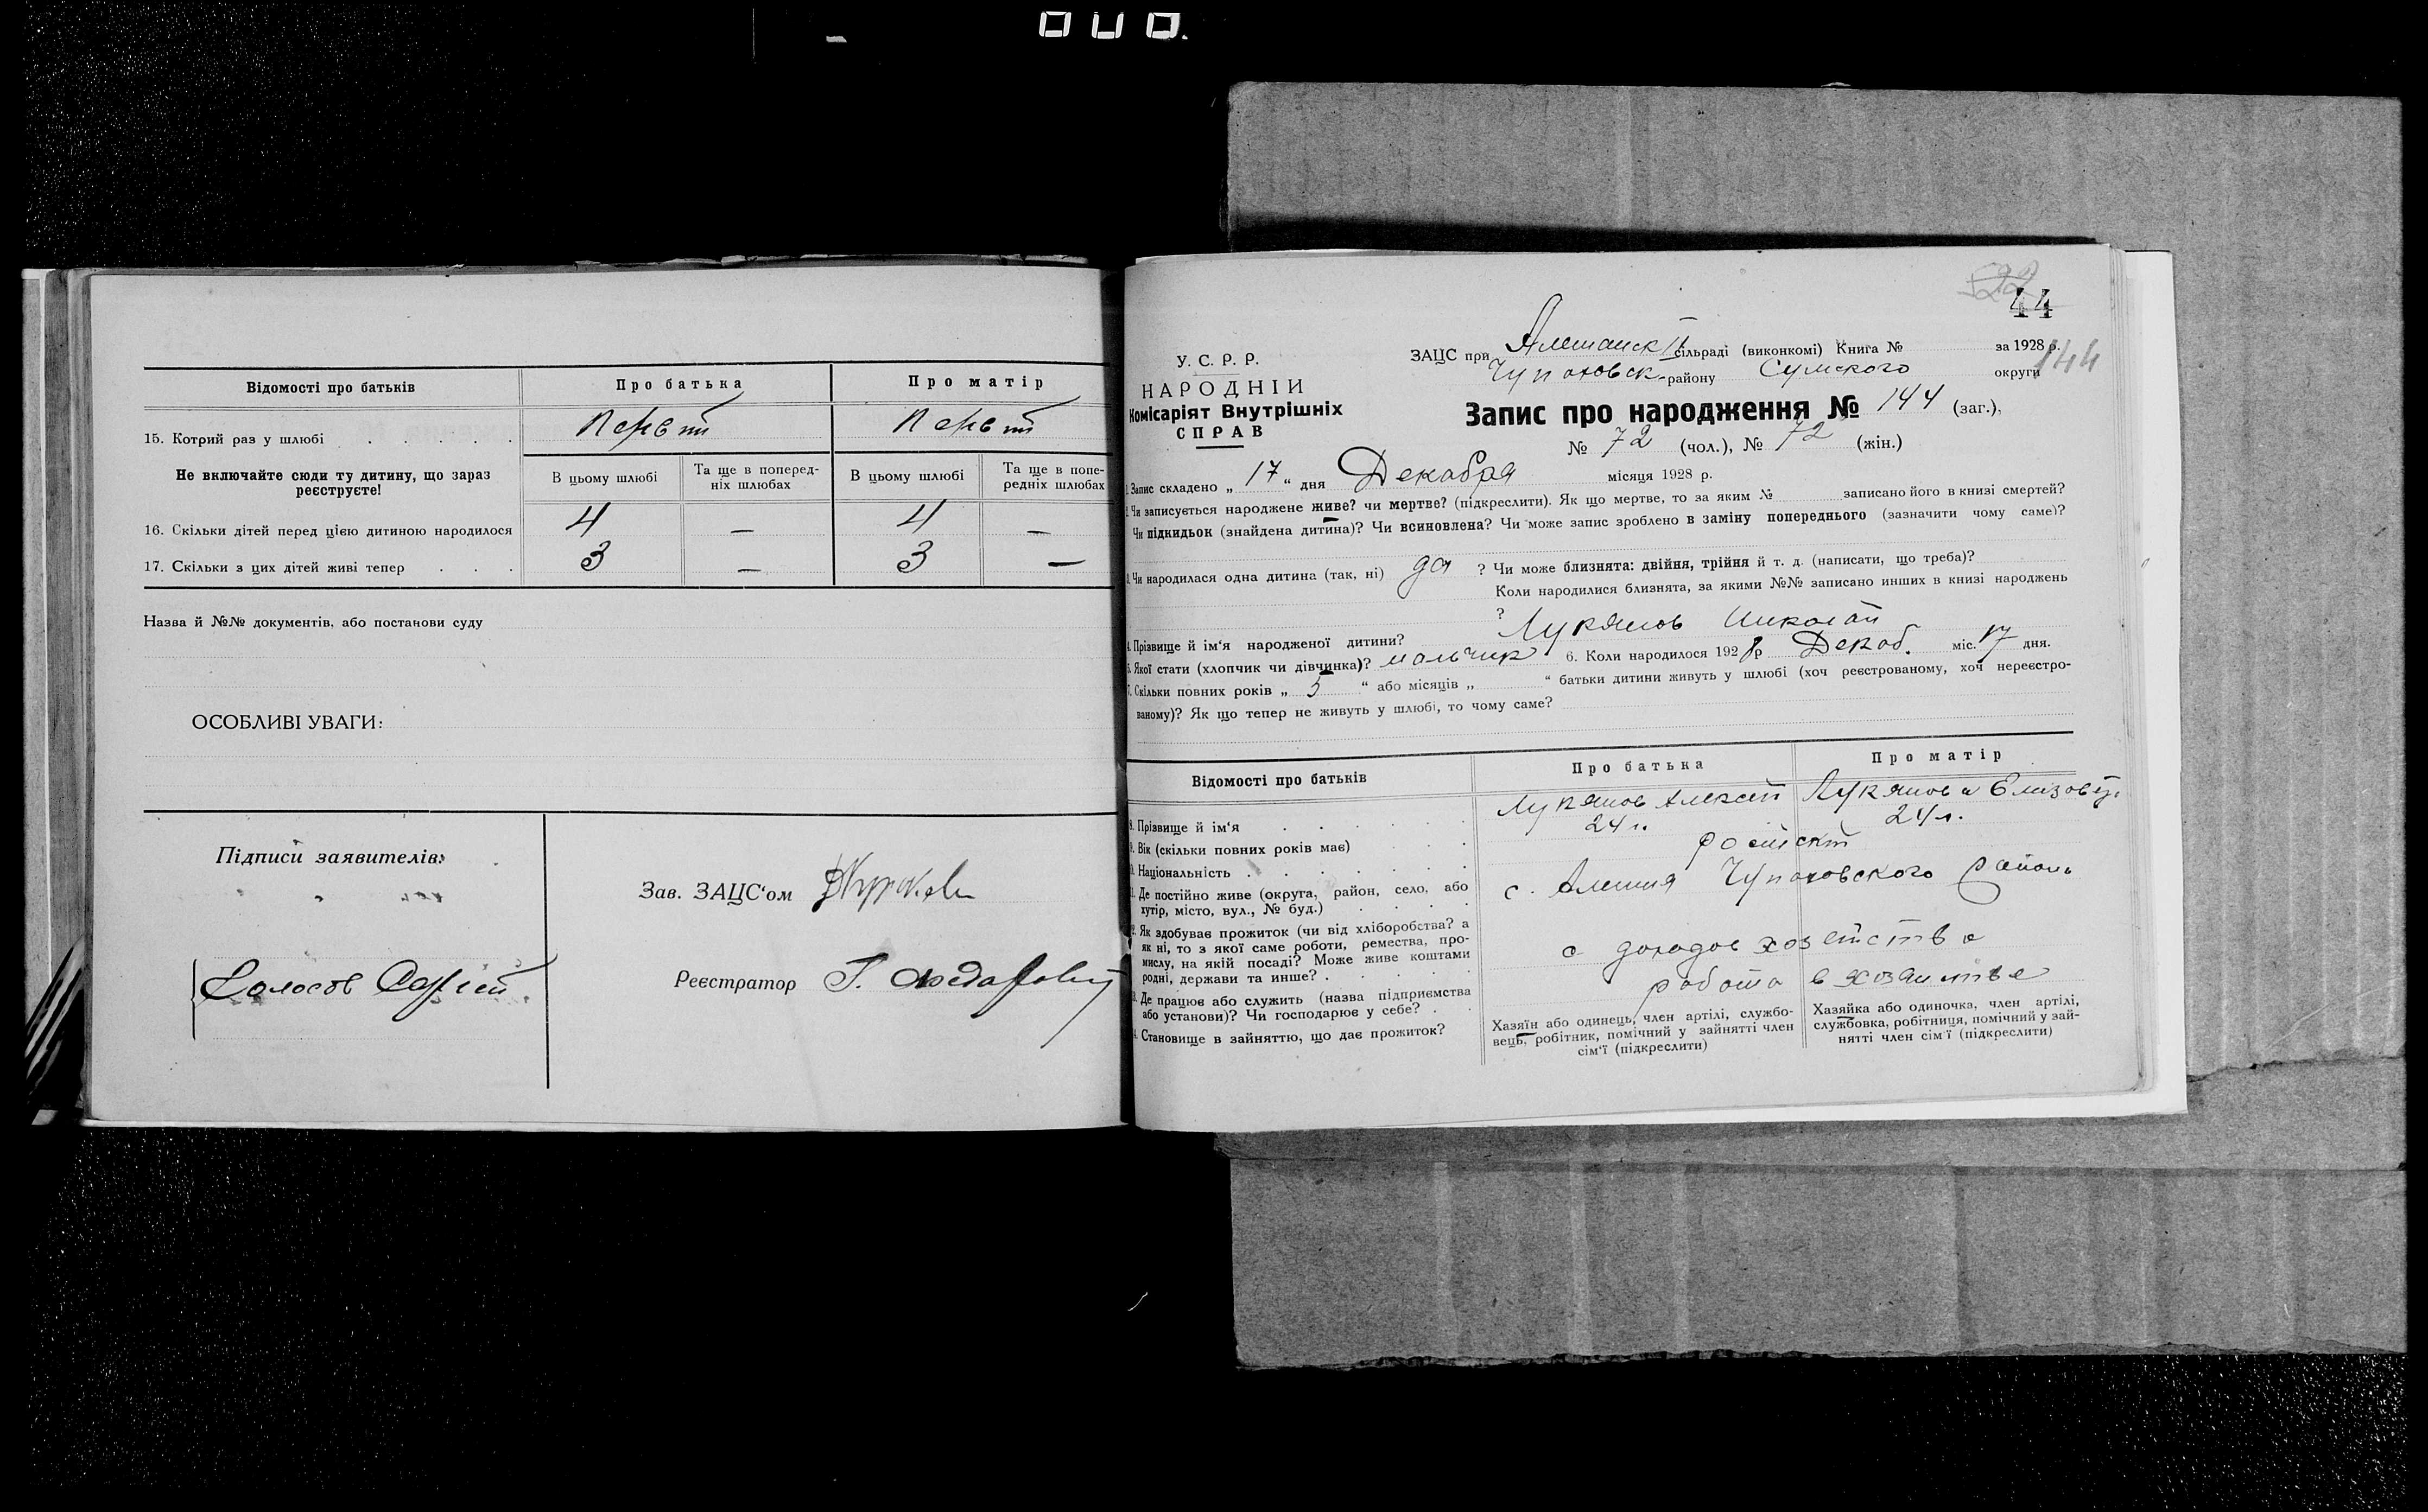 Відомості про батьків
Про батька
Про матір
15. Котрий раз у шлюбі . . . . .
Первый
Первый
Не включайте сюди ту дитину, що зараз
реєструєте!
В цьому шлюбі
Та ще в поперед-
ніх шлюбах
В цьому шлюбі
Та ще в попе-
редніх шлюбах
16. Скільки дітей перед цією дитиною народилося
4
—
4
—
17. Скільки з цих дітей живі тепер . . .
3
—
3
—
Назва й №№ документів, або постанови суду
ОСОБЛИВІ УВАГИ:
Підписи заявителів:
Зав. ЗАЦС‘ом
Реєстратор
44
У. С. Р. Р.
НАРОДНІЙ
Комісаріят Внутрішніх
СПРАВ
ЗАЦС при Алешанск сільраді (виконкомі) Книга № за 1928 р.
Чупаховск. району Сумского округи
144
Запис про народження № 144 (заг.),
№ 72 (чол.), № 72 (жін.)
Запис складено „ 17 “ дня Декабря місяця 1928 р.
Чи записується народжене живе? чи мертве? (підкреслити). Як що мертве, то за яким № записано його в книзі смертей?
Чи підкидьок (знайдена дитина)? Чи всиновлена? Чи може запис зроблено в заміну попереднього (зазначити чому саме)?
Чи народилася одна дитина (так, ні) да ? Чи може близнята: двійня, трійня й т. д. (написати, що треба)?
Коли народилися близнята, за якими №№ записано инших в книзі народжень
?
Прізвище й ім‘я народженої дитини? Лукянов Николай
Якої стати (хлопчик чи дівчинка)? мальчик 6. Коли народилось 1928 р Декаб. міс. 17 дня.
Скільки повних років „ 5 “ або місяців „ “ батьки дитини живуть у шлюбі (хоч реєстрованому, хоч нереєстро-
ваному)? Як що тепер не живуть у шлюбі, то чому саме?
Відомості про батьків
Про батька
Про матір
8. Прізвище й ім‘я . . . . .
Лукянов Алексей
Лукянова Елизовет.
9. Вік (скільки повних років має) . . .
24 г.
24 г.
Національність . . . . . .
Де постійно живе (округа, район, село, або
хутір, місто, вул., № буд.) . . . .
с. Алешня Чупаховского района
Як здобуває прожиток (чи від хліборобства? а
як ні, то з якої саме роботи, ремества, про-
мислу, на якій посаді? Може живе коштами
родні, держави та инше? . . . . .
с доходов хозейства
Де працює або служить (назва підприємства
або установи)? Чи господарює у себе? . .
работа в хозяйстве
Становище в зайняттю, що дає прожиток?
Хазяїн або одинець, член артілі, службо-
вець, робітник, помічний у зайнятті член
сім‘ї (підкреслити)
Хазяйка або одиночка, член артілі,
службовка, робітниця, помічний у зай-
нятті член сім‘ї (підкреслити)